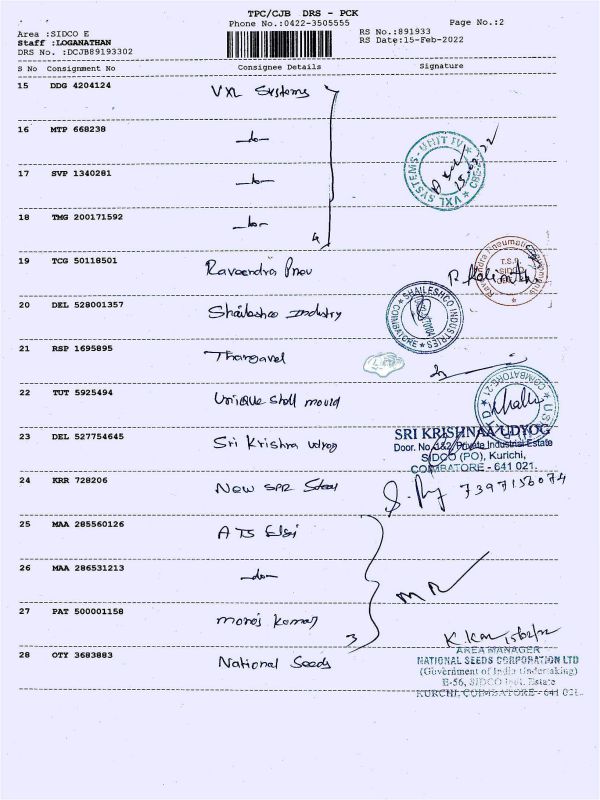 TPC/CJB DRS - PCK
Phone No.:0422-3505555
Page No.:2
Area :SIDCO E
Staff :LOGANATHAN
DRS No. :DCJB89193302
RS No.:891933
RS Date:15-Feb-2022
S No Consignment No Consignee Details Signature
15 DDG 4204124 VXL Systems
16 MTP 668238 -do-
17 SVP 1340281 -do-
18 TMG 200171592 -do-
4
VXL SYSTEMS - UNIT IV
19 TCG 50118501 Raveendra Pneu
20 DEL 528001357 Shaileshco Industry
SHAILESHCO INDUSTRIES
COIMBATORE
21 RSP 1695895 Thangavel
22 TUT 5925494 Unique Shell mould
COIMBATORE-21
23 DEL 527754645 Sri Krishna udyog
SRI KRISHNAA UDYOG
Door. No. 1&2, Private Industrial Estate
SIDCO (PO), Kurichi,
COIMBATORE - 641 021.
24 KRR 728206 New SPR Steel
7397156074
25 MAA 285560126 ATS Elsi
26 MAA 286531213 -do-
27 PAT 500001158 manoj kumar
3
28 OTY 3683883 National Seeds
15/02/22
AREA MANAGER
NATIONAL SEEDS CORPORATION LTD
(Government of India Undertaking)
E-56, SIDCO Indl. Estate
KURCHI, COIMBATORE - 641 021.